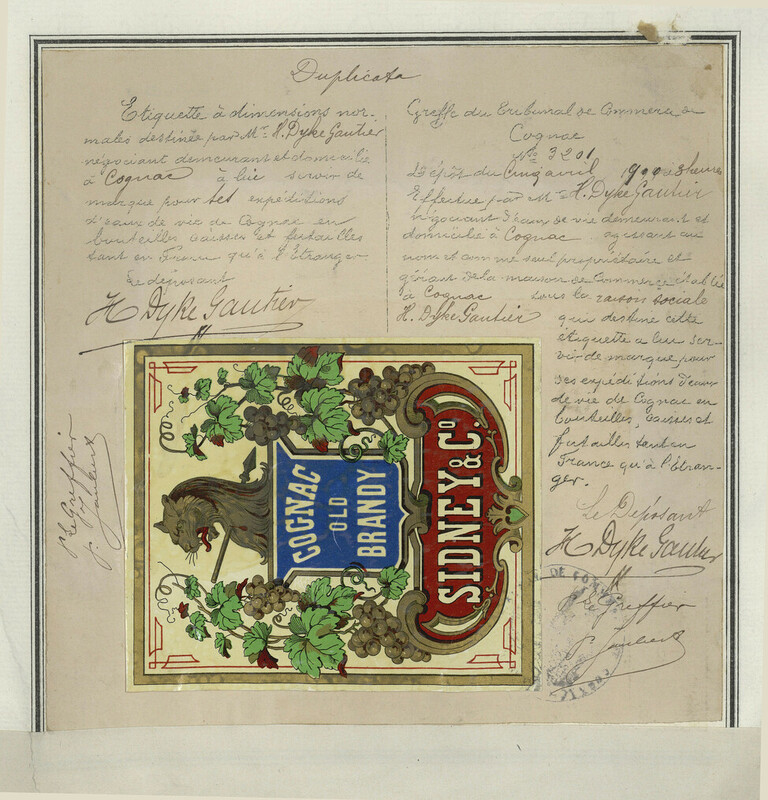 Duplicata
Etiquette à dimensions nor-
males destinée par Mr. H. Dyke Gautier
négociant demeurant et domicilié
à Cognac à lui servir de
marque pour ses expéditions
d'eaux de vie de Cognac en
bouteilles, caisses et futailles
tant en France qu'à l'Etranger.
Le déposant
H Dyke Gautier
Greffe du Tribunal de Commerce de
Cognac
No 3201
Dépôt du Cinq avril 1900 à 3 heures
Effectué par Mr H. Dyke Gautier
négociant d'eaux de vie demeurant et
domicilié à Cognac agissant au
nom et comme seul propriétaire et
gérant de la maison de Commerce établie
à Cognac sous la raison sociale
H. Dyke Gautier qui destine cette
étiquette à lui ser-
vir de marque pour
ses expéditions d'eaux
de vie de Cognac en
bouteilles, caisses et
futailles tant en
France qu'à l'Etran-
ger.
Le Déposant
H Dyke Gautier
Le Greffier
P. Jaubert
Le Greffier
P. Jaubert
COGNAC
OLD
BRANDY
SIDNEY & Co.
DE COMM
COGNAC